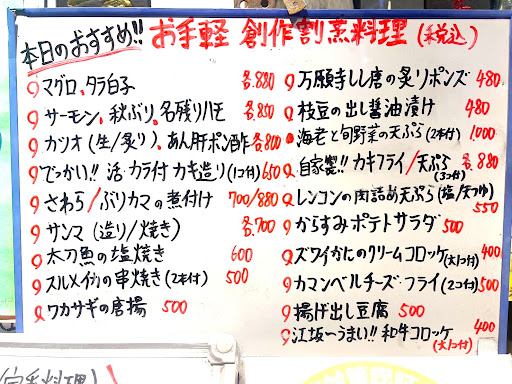 本日のおすすめ!! お手軽 創作割烹料理 (税込)
マグロ、タラ白子 各880
サーモン、秋ぶり、名残りハモ 各850
カツオ(生/炙り)、あん肝ポン酢 各800
でっかい!! 活・カラ付カキ造り(1コ付) 650
さわら/ぶりカマの煮付け 700/880
サンマ(造り/焼き) 各700
太刀魚の塩焼き 600
スルメイカの串焼き(2本付) 500
ワカサギの唐揚 500
万願寺しし唐の炙りポンズ 480
枝豆の出し醤油漬け 480
海老と旬野菜の天ぷら(2本付) 1000
自家製!! カキフライ/天ぷら 各880
(3コ付)
レンコンの肉詰め天ぷら(塩/天つゆ)
550
からすみポテトサラダ 500
ズワイかにのクリームコロッケ(大1コ付) 400
カマンベールチーズ・フライ(2コ付) 500
揚げ出し豆腐 500
江坂〜うまい!! 和牛コロッケ 400
(大1コ付)